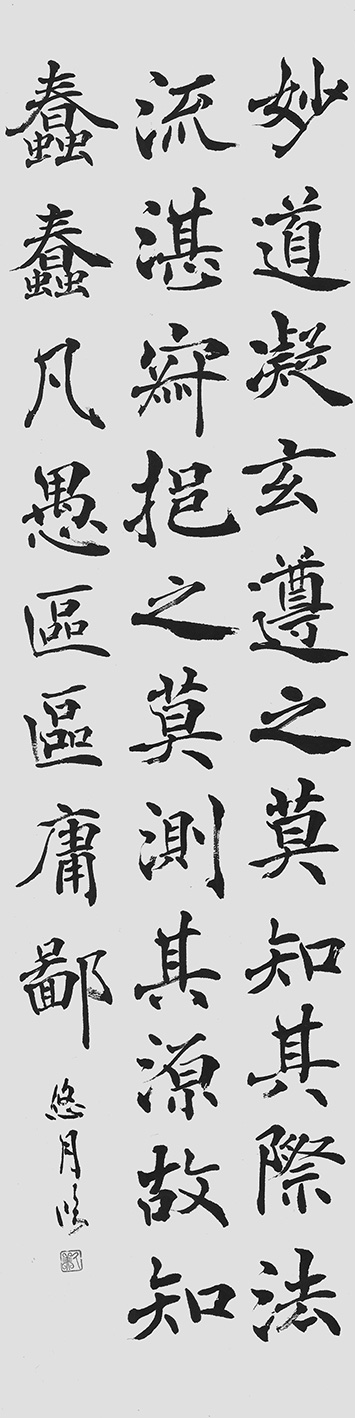 妙道凝玄遵之莫知其際法
流湛寂挹之莫測其源故知
蠢蠢凡愚區區庸鄙
悠月臨